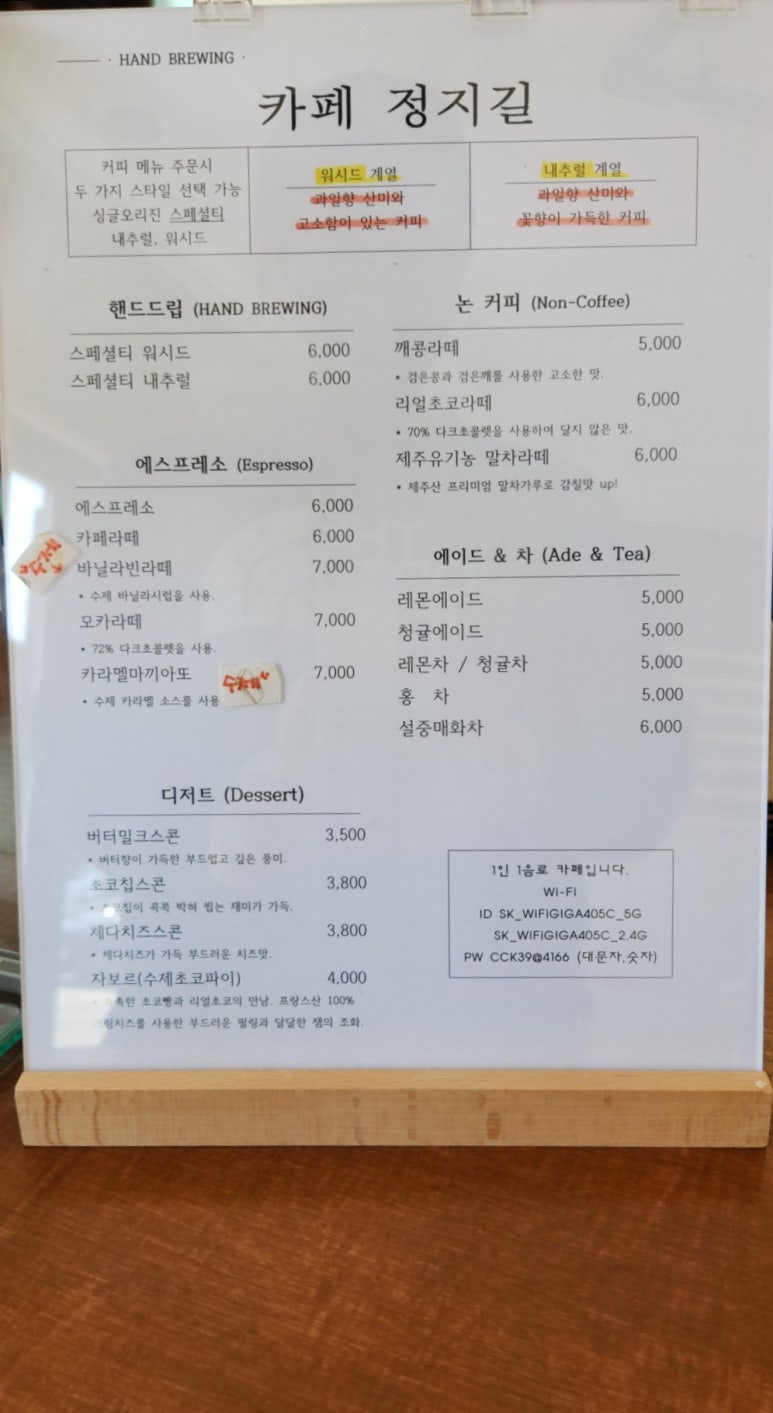 · HAND BREWING ·
카페 정지길
커피 메뉴 주문시
두 가지 스타일 선택 가능
싱글오리진 스페셜티
내추럴, 워시드
워시드 계열
과일향 산미와
고소함이 있는 커피
내추럴 계열
과일향 산미와
꽃향이 가득한 커피
핸드드립 (HAND BREWING)
스페셜티 워시드 6,000
스페셜티 내추럴 6,000
에스프레소 (Espresso)
에스프레소 6,000
카페라떼 6,000
바닐라빈라떼 7,000
• 수제 바닐라시럽을 사용.
모카라떼 7,000
• 72% 다크초콜렛을 사용.
카라멜마끼아또 7,000
• 수제 카라멜 소스를 사용
디저트 (Dessert)
버터밀크스콘 3,500
• 버터향이 가득한 부드럽고 깊은 풍미.
초코칩스콘 3,800
• 초코칩이 콕콕 박혀 씹는 재미가 가득.
체다치즈스콘 3,800
• 체다치즈가 가득 부드러운 치즈맛.
자보르(수제초코파이) 4,000
초코빵과 리얼초코의 만남. 프랑스산 100%
크림치즈를 사용한 부드러운 필링과 달달한 잼의 조화.
논 커피 (Non-Coffee)
깨콩라떼 5,000
• 검은콩과 검은깨를 사용한 고소한 맛.
리얼초코라떼 6,000
• 70% 다크초콜렛을 사용하여 달지 않은 맛.
제주유기농 말차라떼 6,000
• 제주산 프리미엄 말차가루로 감칠맛 up!
에이드 & 차 (Ade & Tea)
레몬에이드 5,000
청귤에이드 5,000
레몬차 / 청귤차 5,000
홍 차 5,000
설중매화차 6,000
1인 1음료 카페입니다.
Wi-Fi
ID SK_WiFiGIGA405C_5G
SK_WiFiGIGA405C_2.4G
PW CCK39@4166 (대문자,숫자)